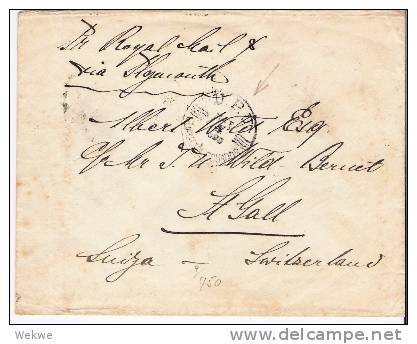 Pr Royal Mail &
via Plymouth
Albert Wild Esq
c/o Mr J. U. Wild-Bernet
St Gall
Suiza - Switzerland
450
Wekwe
delcampe.net